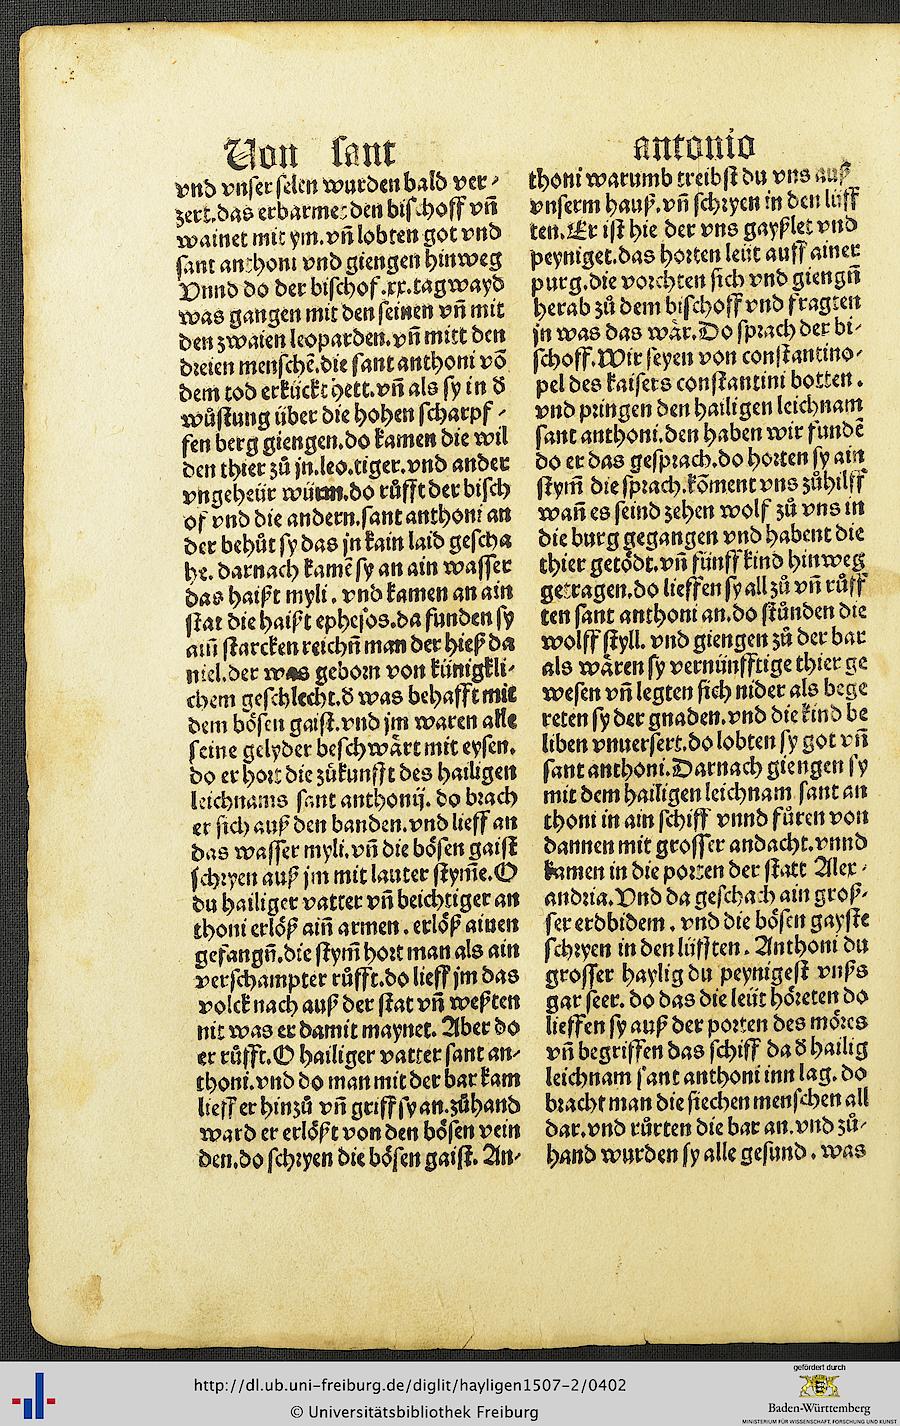 Von sant antonio
vnd vnser selen wurden bald ver-
zert.das erbarmet den bischoff vn̄
wainet mit ym.vn̄ lobten got vnd
sant anthoni vnd giengen hinweg
Vnnd do der bischof.xx.tagwayd
was gangen mit den seinen vn̄ mit
den zwaien leoparden.vn̄ mitt den
dreien menschē.die sant anthoni vō
dem tod erkückt hett.vn̄ als sy in d̕
wůstung über die hohen scharpf-
fen berg giengen.do kamen die wil
den thier zů jn.leo.tiger.vnd ander
vngeheür würm.do růfft der bisch
of vnd die andern.sant anthoni an
der behůt sy das jn kain laid gescha
he. darnach kamē sy an ain wasser
das haißt myli. vnd kamen an ain
stat die haißt ephesos.da funden sy
ain̄ starcken reichn̄ man der hieß da
niel.der was geborn von künigkli-
chem geschlecht.d̕ was behafft mit
dem bösen gaist.vnd jm waren alle
seine gelyder beschwärt mit eysen.
do er hort die zůkunfft des hailigen
leichnams sant anthonij. do brach
er sich auß den banden.vnd lieff an
das wasser myli.vn̄ die bösen gaist
schryen auß jm mit lauter stym̄e.O
du hailiger vatter vn̄ beichtiger an
thoni erlöß ain̄ armen. erlöß ainen
gefangn̄.die stym̄ hort man als ain
verschampter růfft.do lieff jm das
volck nach auß der stat vn̄ weßten
nit was er damit maynet. Aber do
er růfft.O hailiger vatter sant an-
thoni.vnd do man mit der bar kam
lieff er hinzů vn̄ griff sy an.zůhand
ward er erlößt von den bösen vein
den.do schryen die bösen gaist. An-
thoni warumb treibst du vns auß
vnserm hauß.vn̄ schryen in den lüff
ten.Er ist hie der vns gayßlet vnd
peyniget.das horten leüt auff ainer
purg.die vorchten sich vnd giengn̄
herab zů dem bischoff vnd fragten
jn was das wär.Do sprach der bi-
schoff.Wir seyen von constantino-
pel des kaisers constantini botten.
vnd pringen den hailigen leichnam
sant anthoni.den haben wir fundē
do er das gesprach.do horten sy ain
stym̄ die sprach.kōment vns zůhilff
wan̄ es seind zehen wolf zů vns in
die burg gegangen vnd habent die
thier getödt.vn̄ fünff kind hinweg
getragen.do lieffen sy all zů vn̄ růff
ten sant anthoni an.do stůnden die
wolff styll. vnd giengen zů der bar
als wären sy vernünfftige thier ge
wesen vn̄ legten sich nider als bege
reten sy der gnaden.vnd die kind be
liben vnuersert.do lobten sy got vn̄
sant anthoni.Darnach giengen sy
mit dem hailigen leichnam sant an
thoni in ain schiff vnnd fůren von
dannen mit grosser andacht.vnnd
kamen in die porten der statt Alex-
andria.Vnd da geschach ain groß-
ser erdbidem. vnd die bösen gayste
schryen in den lüfften. Anthoni du
grosser haylig du peynigest vnßs
gar seer. do das die leüt höreten do
lieffen sy auß der porten des mōres
vn̄ begriffen das schiff da d̕ hailig
leichnam sant anthoni inn lag. do
bracht man die siechen menschen all
dar.vnd růrten die bar an.vnd zů-
hand wurden sy alle gesund. was
http://dl.ub.uni-freiburg.de/diglit/hayligen1507-2/0402
© Universitätsbibliothek Freiburg
gefördert durch
Baden-Württemberg
MINISTERIUM FÜR WISSENSCHAFT, FORSCHUNG UND KUNST